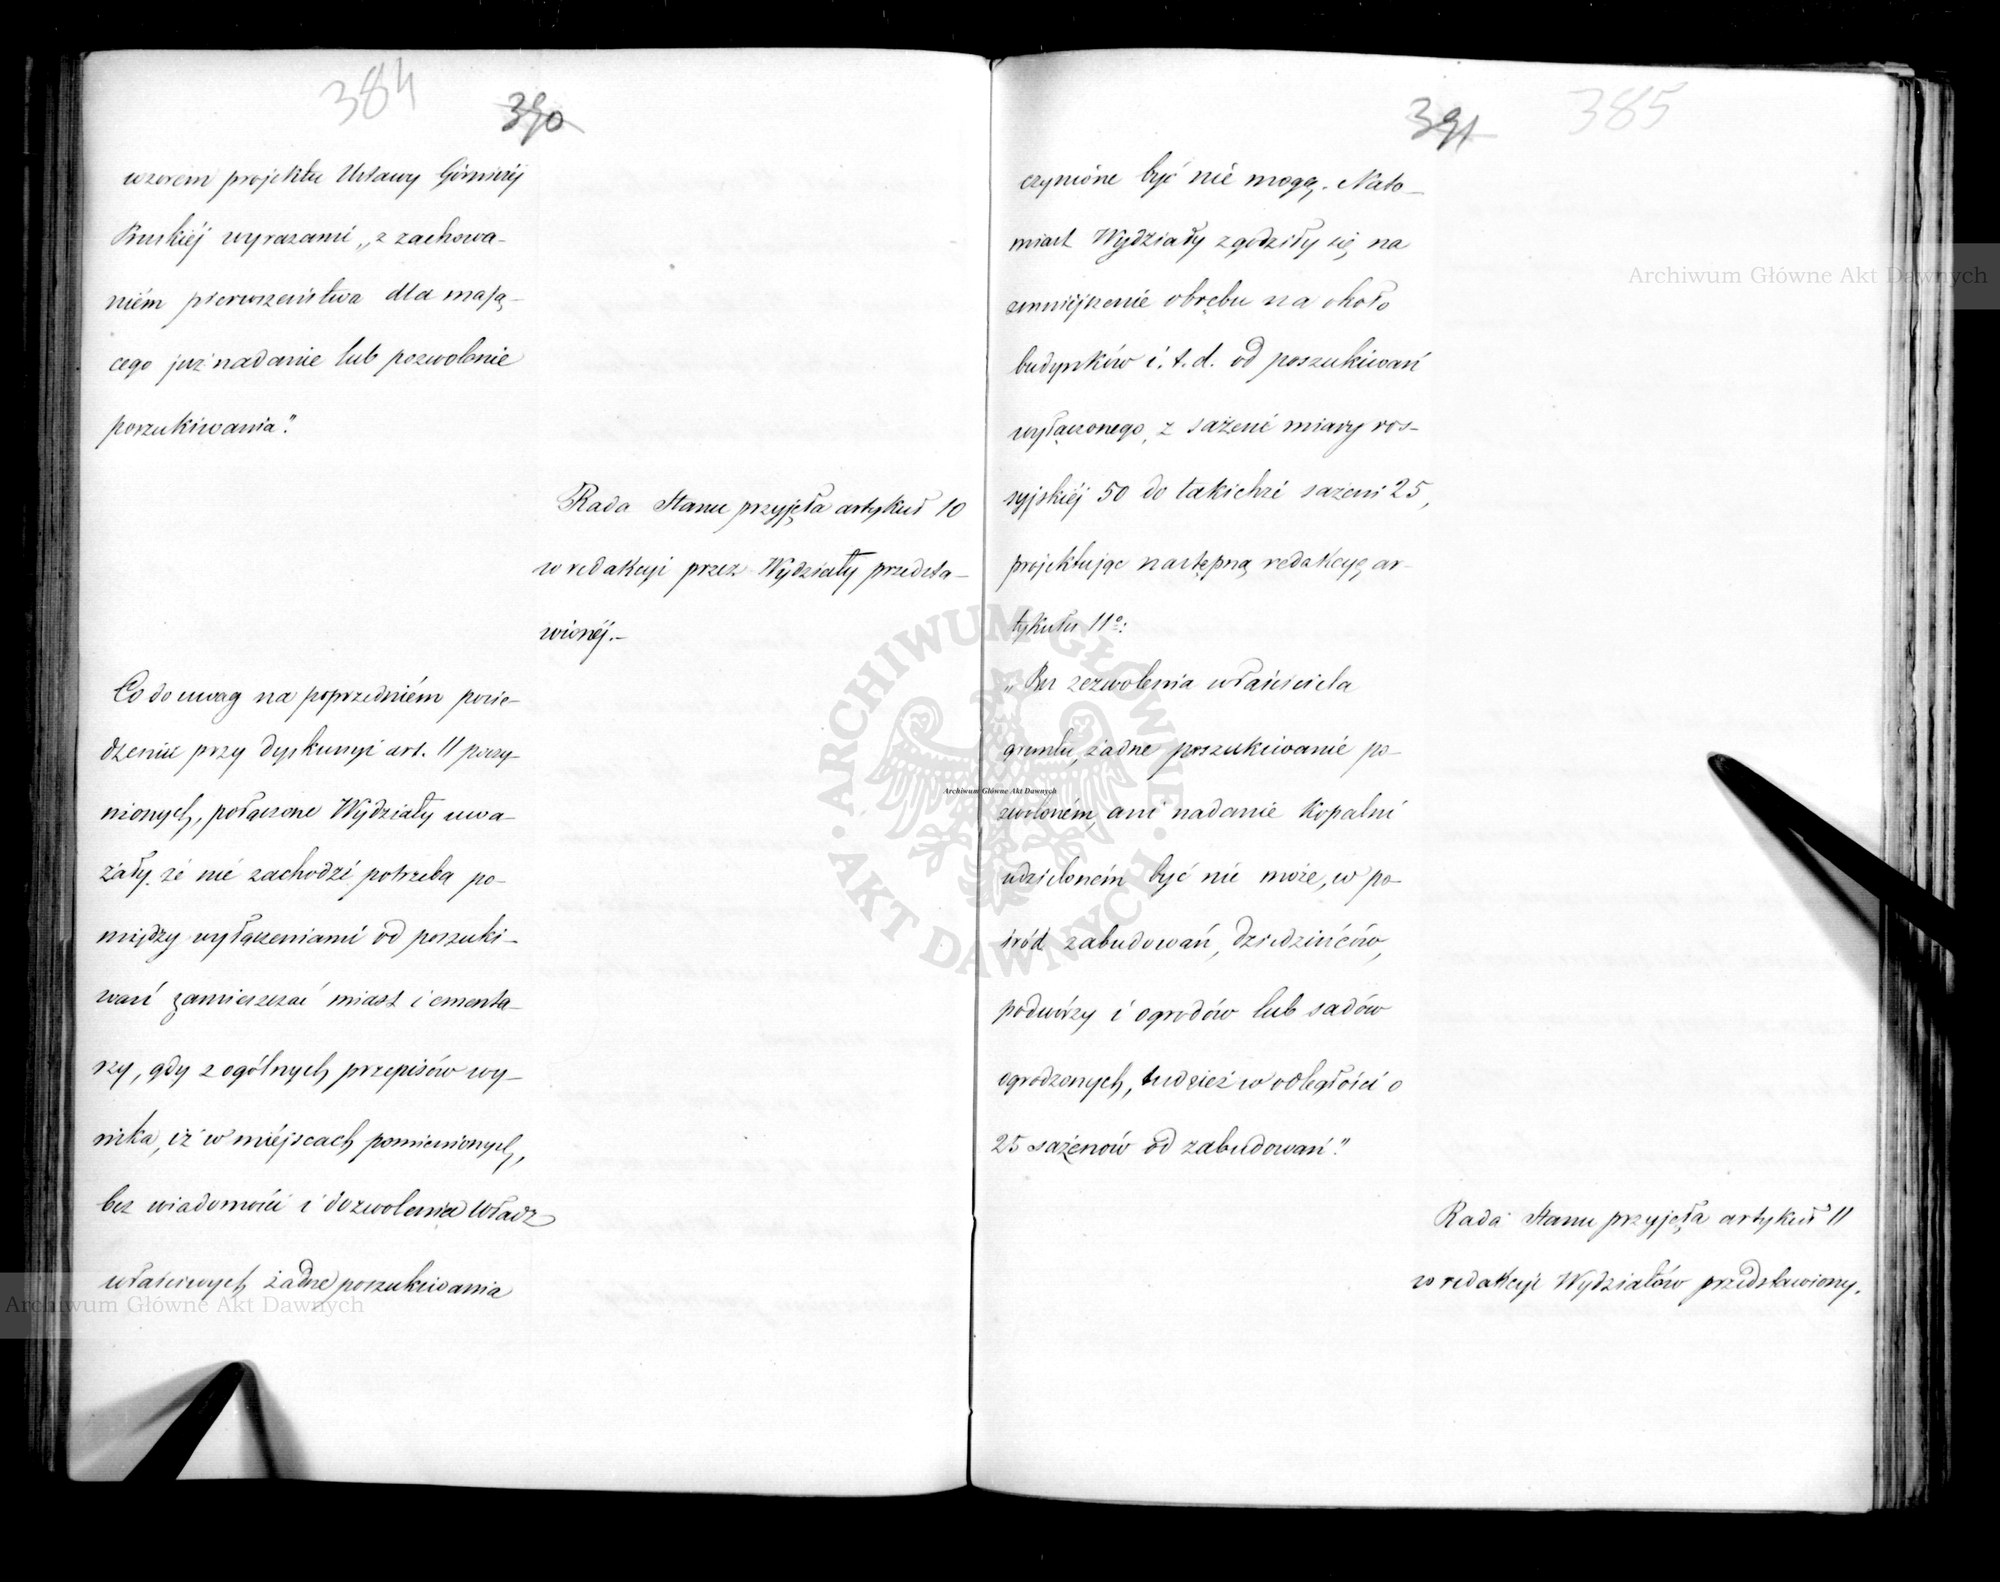 384
390
wzorem projektu Ustawy Górniczéj
Pruskiéj wyrazami „z zachowa-
niém pierwszeństwa dla mają-
cego już nadanie lub pozwolenie
poszukiwania".
Rada Stanu przyjęła artykuł 10
w redakcyi przez Wydziały przedsta-
wionéj.-
Co do uwag na poprzedniém posie-
dzeniu przy dyskussyi art. 11 poczy-
nionych, połączone Wydziały uwa-
żały że nie zachodzi potrzeba po-
między wyłączeniami od poszuki-
wań zamieszczać miast i cmenta-
rzy, gdy z ogólnych przepisów wy-
nika, iż w miéjscach pomienionych,
bez wiadomości i dozwolenia Władz
właściwych żadne poszukiwania
391
385
czynione być nie mogą. Nato-
miast Wydziały zgodziły się na
zmniéjszenie obrębu na około
budynków i.t.d. od poszukiwań
wyłączonego, z sażeni miary ros-
syjskiéj 50 do takichże sażeni 25,
projektując następną redakcyę ar-
tykułu 11º:
„Bez zezwolenia właściciela
gruntu, żadne poszukiwanie po-
zwoloném, ani nadanie kopalni
udzieloném być nie może, w po-
śród zabudowań, dziedzińców,
podwórzy i ogrodów lub sadów
ogrodzonych, tudzież w odległości o
25 sażenów od zabudowań."
Rada Stanu przyjęła artykuł 11
w redakcyi Wydziałów przedstawiony.
Archiwum Główne Akt Dawnych
Archiwum Główne Akt Dawnych
ARCHIWUM GŁÓWNE AKT DAWNYCH
Archiwum Główne Akt Dawnych